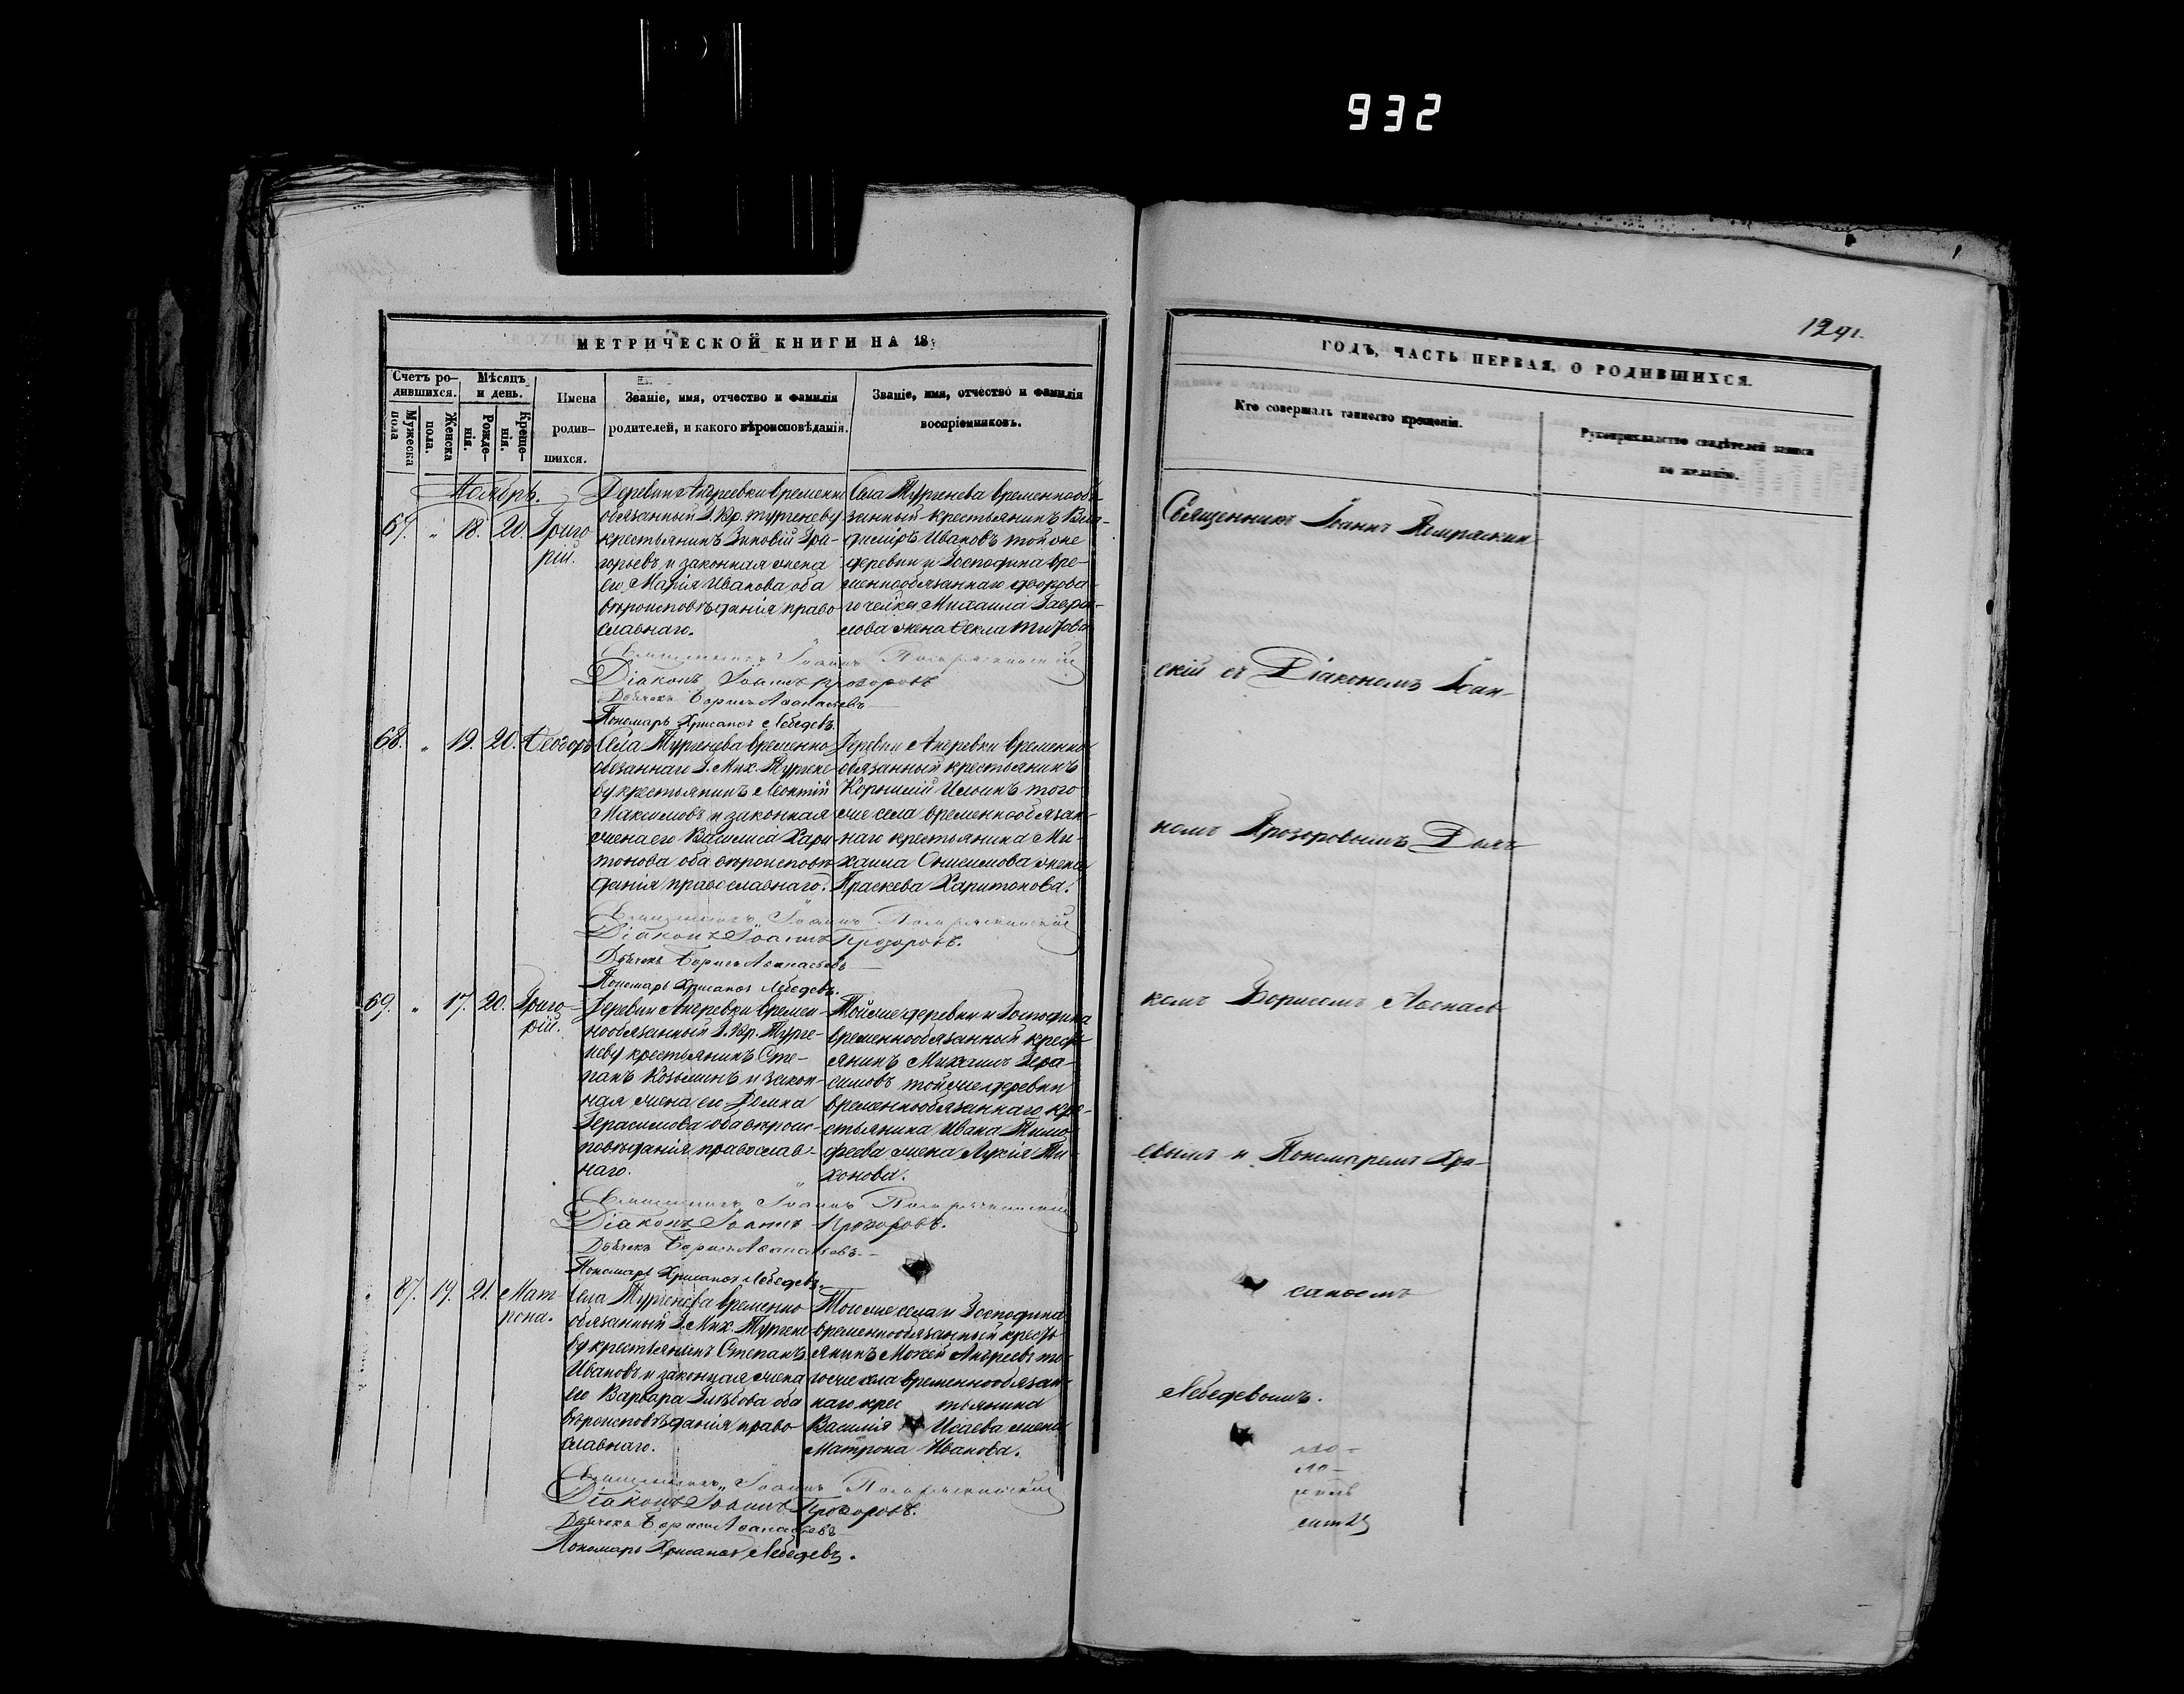 932
1291.
МЕТРИЧЕСКОЙ КНИГИ НА 18
Счетъ ро-
дившихся.
Мѣсяцъ
и день.
Мужеска
пола
Женска
пола.
Рожде-
нія.
Креще-
нія.
Имена
родив-
шихся.
Званіе, имя, отчество и фамилія
родителей, и какого вѣроисповѣданія.
Званіе, имя, отчество и фамилія
воспріемниковъ.
Ноябрь.
67. " 18. 20. Григо
рій.
Деревни Андреевки временно
обязанный Г. Юр. Тургеневу
крестьянинъ Зиновій Гри-
горьевъ и законная жена
его Марія Иванова оба
вѣроисповѣданія право
славнаго.
Села Тургенева временнообя-
занный крестьянинъ Вла-
диміръ Ивановъ той же
деревни и Господина вре-
меннообязаннаго дворова-
го человѣка Михаила Гаври-
лова жена Ѳекла Титова
Священникъ Іоаннъ
Діаконъ Іоаннъ Прозоровъ
Дьячекъ Борисъ Аѳанасьевъ
Пономарь Хрисанѳъ Лебедевъ.
68. " 19. 20. Ѳеодоръ
Села Тургенева временно
обязаннаго Г. Мих. Тургене
ву крестьянинъ Леонтій
Максимовъ и законная
жена его Василиса Хари
тонова оба вѣроисповѣ
данія православнаго.
Деревни Андревки временно
обязанный крестьянинъ
Корнилій Ильинъ того
же села временнообязан-
наго крестьянина Ми-
хаила Онисимова жена
Праскева Харитонова.
Священникъ Іоаннъ
Діаконъ Іоаннъ Прозоровъ.
Дьячекъ Борисъ Аѳанасьевъ
Пономарь Хрисанѳъ Лебедевъ.
69. " 17. 20. Григо-
рій.
Деревни Андревки времен-
нообязанный Г. Юр. Турге-
неву крестьянинъ Сте-
панъ Козьминъ и закон-
ная жена его Домна
Герасимова оба вѣроис-
повѣданія православ-
наго.
Той же деревни и Господина
временнообязанный кресть
янинъ Михаилъ Гера-
симовъ той же деревни
временнообязаннаго кре-
стьянина Ивана Тимо
феева жена Лукія Ти
хонова.
Священникъ Іоаннъ
Діаконъ Іоаннъ Прозоровъ.
Дьячекъ Борисъ Аѳанасьевъ.
Пономарь Хрисанѳъ Лебедевъ.
" 87. 19. 21. Мат
рона.
Села Тургенева временно
обязанный Г. Мих. Тургене
ву крестьянинъ Степанъ
Ивановъ и законная жена
его Варвара Глѣбова оба
вѣроисповѣданія право
славнаго.
Того же села и Господина
временнообязанный кресть
янинъ Мокей Андреевъ то-
го же села временнообязан-
наго крес тьянина
Василія Исаева жена
Матрона Иванова.
Священникъ Іоаннъ
Діаконъ Іоаннъ Прозоровъ.
Дьячекъ Борисъ Аѳанасьевъ
Пономарь Хрисанѳъ Лебедевъ.
ГОДЪ, ЧАСТЬ ПЕРВАЯ, О РОДИВШИХСЯ.
Кто совершалъ таинство крещенія.
Рукоприкладство свидѣтелей записи
по желанію.
Священникъ Іоаннъ
скій съ Діакономъ Іоан-
номъ Прозоровымъ Дьяч
комъ Борисомъ Аѳанась
евымъ и Пономаремъ Хри-
санѳомъ
Лебедевымъ.